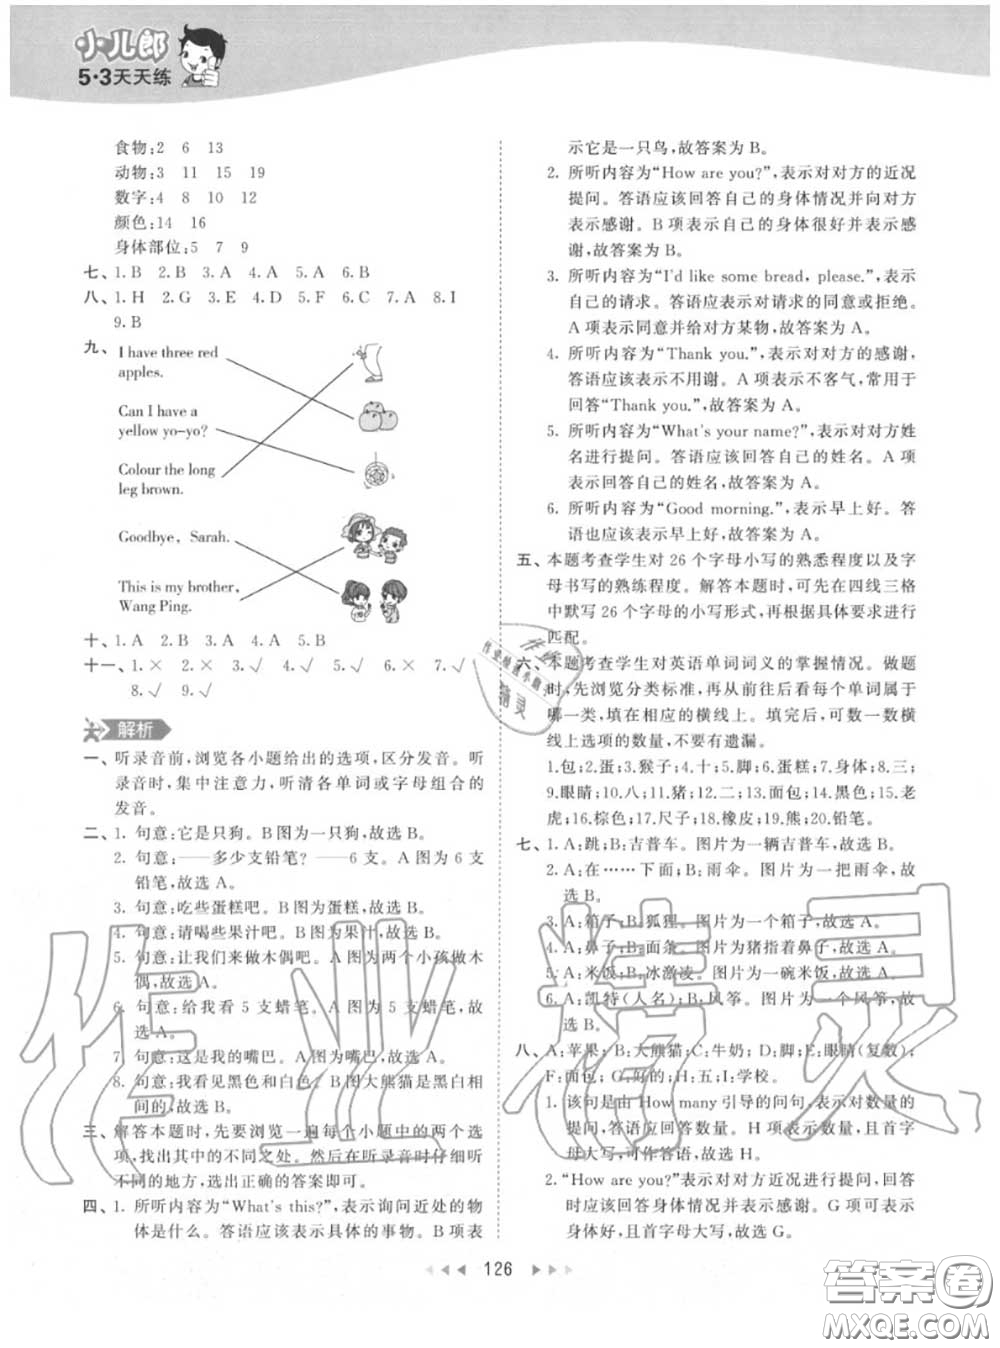 小儿郎
5·3天天练
食物:2 6 13
动物:3 11 15 19
数字:4 8 10 12
颜色:14 16
身体部位:5 7 9
七、1.B 2.B 3.A 4.A 5.A 6.B
八、1.H 2.G 3.E 4.D 5.F 6.C 7.A 8.I
9.B
九、
I have three red
apples.
Can I have a
yellow yo-yo?
Colour the long
leg brown.
Goodbye, Sarah.
This is my brother,
Wang Ping.
十、1.A 2.A 3.B 4.A 5.B
十一、1.× 2.× 3.√ 4.√ 5.√ 6.× 7.√
8.√ 9.√
解析
一、听录音前,浏览各小题给出的选项,区分发音。听
录音时,集中注意力,听清各单词或字母组合的
发音。
二、1. 句意:它是只狗。B图为一只狗,故选 B。
2. 句意:——多少支铅笔? ——6支。A 图为 6 支
铅笔,故选 A。
3. 句意:吃些蛋糕吧。B图为蛋糕,故选 B。
4. 句意:请喝些果汁吧。B图为果汁,故选 B。
5. 句意:让我们来做木偶吧。A图为两个小孩做木
偶,故选 A。
6. 句意:给我看 5 支蜡笔。A 图为 5 支蜡笔,故
选 A。
7. 句意:这是我的嘴巴。A图为嘴巴,故选 A。
8. 句意:我看见黑色和白色。B图大熊猫是黑白相
间的,故选 B。
三、解答本题时,先要浏览一遍每个小题中的两个选
项,找出其中的不同之处。然后在听录音时仔细听
不同的地方,选出正确的答案即可。
四、1. 所听内容为“What's this?”,表示询问近处的物
体是什么。答语应该表示具体的事物。B 项表
示它是一只鸟,故答案为 B。
2. 所听内容为“How are you?”,表示对对方的近况
提问。答语应该回答自己的身体情况并向对方
表示感谢。B 项表示自己的身体很好并表示感
谢,故答案为 B。
3. 所听内容为“I'd like some bread, please.”,表示
自己的请求。答语应表示对请求的同意或拒绝。
A 项表示同意并给对方某物,故答案为 A。
4. 所听内容为“Thank you.”,表示对对方的感谢,
答语应该表示不用谢。A 项表示不客气,常用于
回答“Thank you.”,故答案为 A。
5. 所听内容为“What's your name?”,表示对对方姓
名进行提问。答语应该回答自己的姓名。A 项
表示回答自己的姓名,故答案为 A。
6. 所听内容为“Good morning.”,表示早上好。答
语也应该表示早上好,故答案为 A。
五、本题考查学生对 26 个字母小写的熟悉程度以及字
母书写的熟练程度。解答本题时,可先在四线三格
中默写 26 个字母的小写形式,再根据具体要求进行
匹配。
六、本题考查学生对英语单词词义的掌握情况。做题
时,先浏览分类标准,再从前往后看每个单词属于
哪一类,填在相应的横线上。填完后,可数一数横
线上选项的数量,不要有遗漏。
1.包;2.蛋;3.猴子;4.十;5.脚;6.蛋糕;7.身体;8.三;
9.眼睛;10.八;11.猪;12.二;13.面包;14.黑色;15.老
虎;16.棕色;17.尺子;18.橡皮;19.熊;20.铅笔。
七、1. A:跳;B:吉普车。图片为一辆吉普车,故选 B。
2. A:在……下面;B:雨伞。图片为一把雨伞,故
选 B。
3. A:箱子;B:狐狸。图片为一个箱子,故选 A。
4. A:鼻子;B:面条。图片为猪指着鼻子,故选 A。
5. A:米饭;B:冰激凌。图片为一碗米饭,故选 A。
6. A:凯特(人名);B:风筝。图片为一个风筝,故
选 B。
八、A:苹果;B:大熊猫;C:牛奶;D:脚;E:眼睛(复数);
F:面包;G:好的;H:五;I:学校。
1. 该句是由 How many 引导的问句,表示对数量的
提问,答语应回答数量。H 项表示数量,且首字
母大写,可作答语,故选 H。
2. “How are you?”表示对对方近况进行提问,回答
时应该回答身体情况并表示感谢。G 项可表示
身体好,且首字母大写,故选 G。
126
作业精灵
作业精灵
答案卷
MXQE.COM